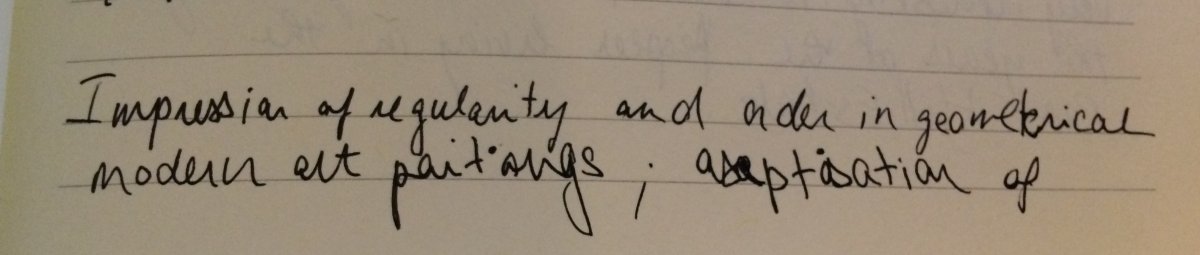 Impression of regularity and order in geometrical
modern art paitings ; aseptisation of